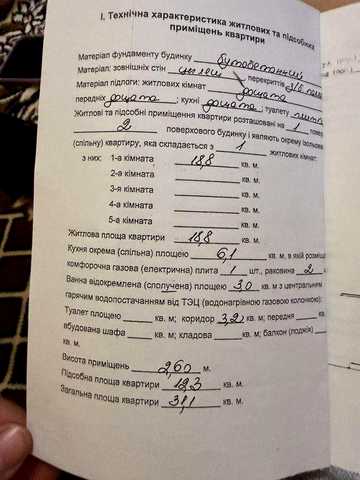 І. Технічна характеристика житлових та підсобних
приміщень квартири
Матеріал фундаменту будинку бутобетонний
Матеріал: зовнішніх стін цегляні, перекриття з/б
Матеріал підлоги: житлових кімнат дощата
передніх дощата; кухні дощата; туалету
Житлові та підсобні приміщення квартири розташовані на 1
2 поверхового будинку і являють окрему
(спільну) квартиру, яка складається з 1 житлових кімнат:
з них: 1-а кімната 18,8 кв. м.
2-а кімната кв. м.
3-я кімната кв. м.
4-а кімната кв. м.
5-а кімната кв. м.
Житлова площа квартири 18,8 кв. м.
Кухня окрема (спільна) площею 6,1 кв. м, в якій
комфорочна газова (електрична) плита 1 шт., раковина 2
Ванна відокремлена (сполучена) площею 3,0 кв. м з центральним
гарячим водопостачанням від ТЭЦ (водонагрівною газовою колонкою).
Туалет площею кв. м; коридор 3,2 кв. м; передня кв.
вбудована шафа кв. м; кладова кв. м; балкон (лоджія)
кв. м.
Висота приміщень 2,60 м.
Підсобна площа квартири 12,3 кв. м.
Загальна площа квартири 31,1 кв. м.